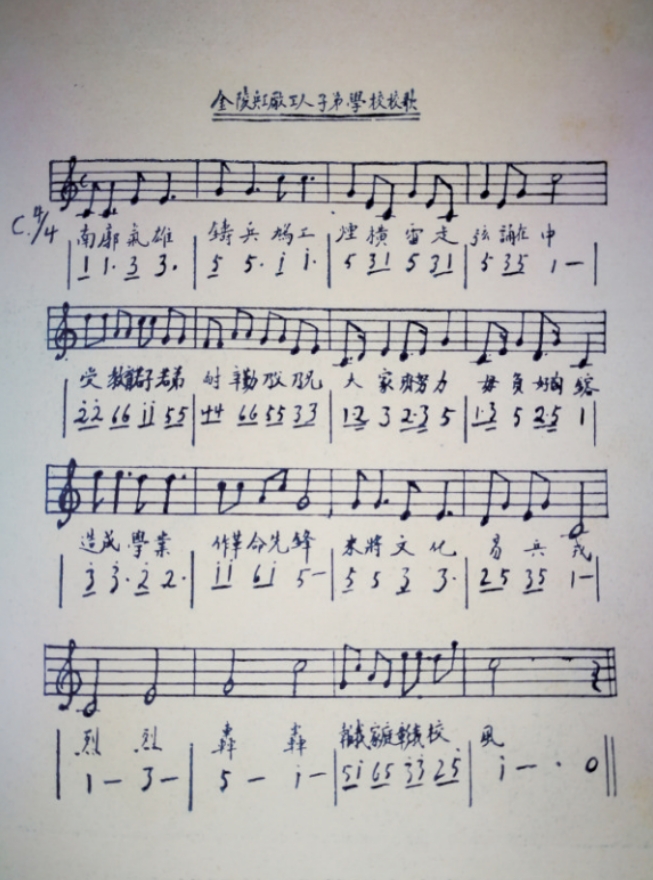 金陵兵工廠工人子弟學校校歌
C.4/4
南廓氣雄 鑄兵鳩工 煙橫雷走 弦誦在中
| 1 1. 3 3. | 5 5. i i. | 5 31 5 31 | 5 35 1 — |
受教君子弟 耐辛勤 大家努力 毋負
| 22 66 ii 55 | 44 66 55 33 | 1·2 3 2·3 5 | 1·3 5 2·5 1 |
造成學業 作革命先鋒 來將文化 易兵戎
| 3 3. 2 2. | ii 6i 5 — | 5 5 3 3. | 25 35 1 — |
烈 烈 轟 轟 校 風
| 1 — 3 — | 5 — i — | 5i 65 33 25 | i — . 0 ||